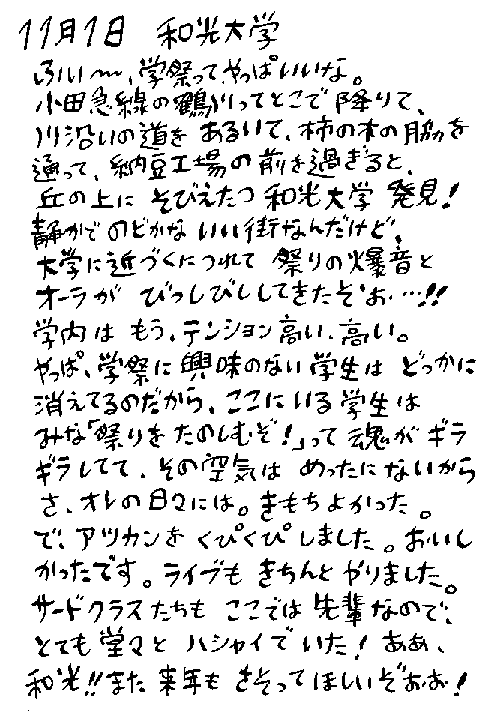 11月1日 和光大学
ふい〜、学祭ってやっぱいいな。
小田急線の鶴川ってとこで降りて、
川沿いの道をあるいて、柿の木の脇を
通って、納豆工場の前を過ぎると、
丘の上にそびえたつ和光大学発見!
静かでのどかないい街なんだけど、
大学に近づくにつれて祭りの爆音と
オーラがびっしびししてきたぞぉ…!!
学内はもう、テンション高い、高い。
やっぱ、学祭に興味のない学生はどっかに
消えてるのだから、ここにいる学生は
みな「祭りをたのしむぞ!」って魂がギラ
ギラしてて、その空気はめったにないから
さ、オレの日々には。きもちよかった。
で、アツカンをくぴくぴしました。おいし
かったです。ライブもきちんとやりました。
サードクラスたちもここでは先輩なので、
とても堂々とハシャイでいた!ああ、
和光!!また来年もさそってほしいぞぉぉ!